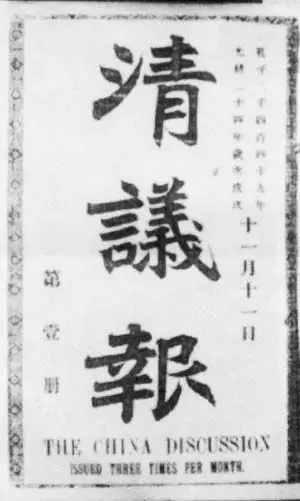 孔子二千四百四十九年
光緒二十四年歲次戊戌
十一月十一日
清議報
第壹册
THE CHINA DISCUSSION
ISSUED THREE TIMES PER MONTH.